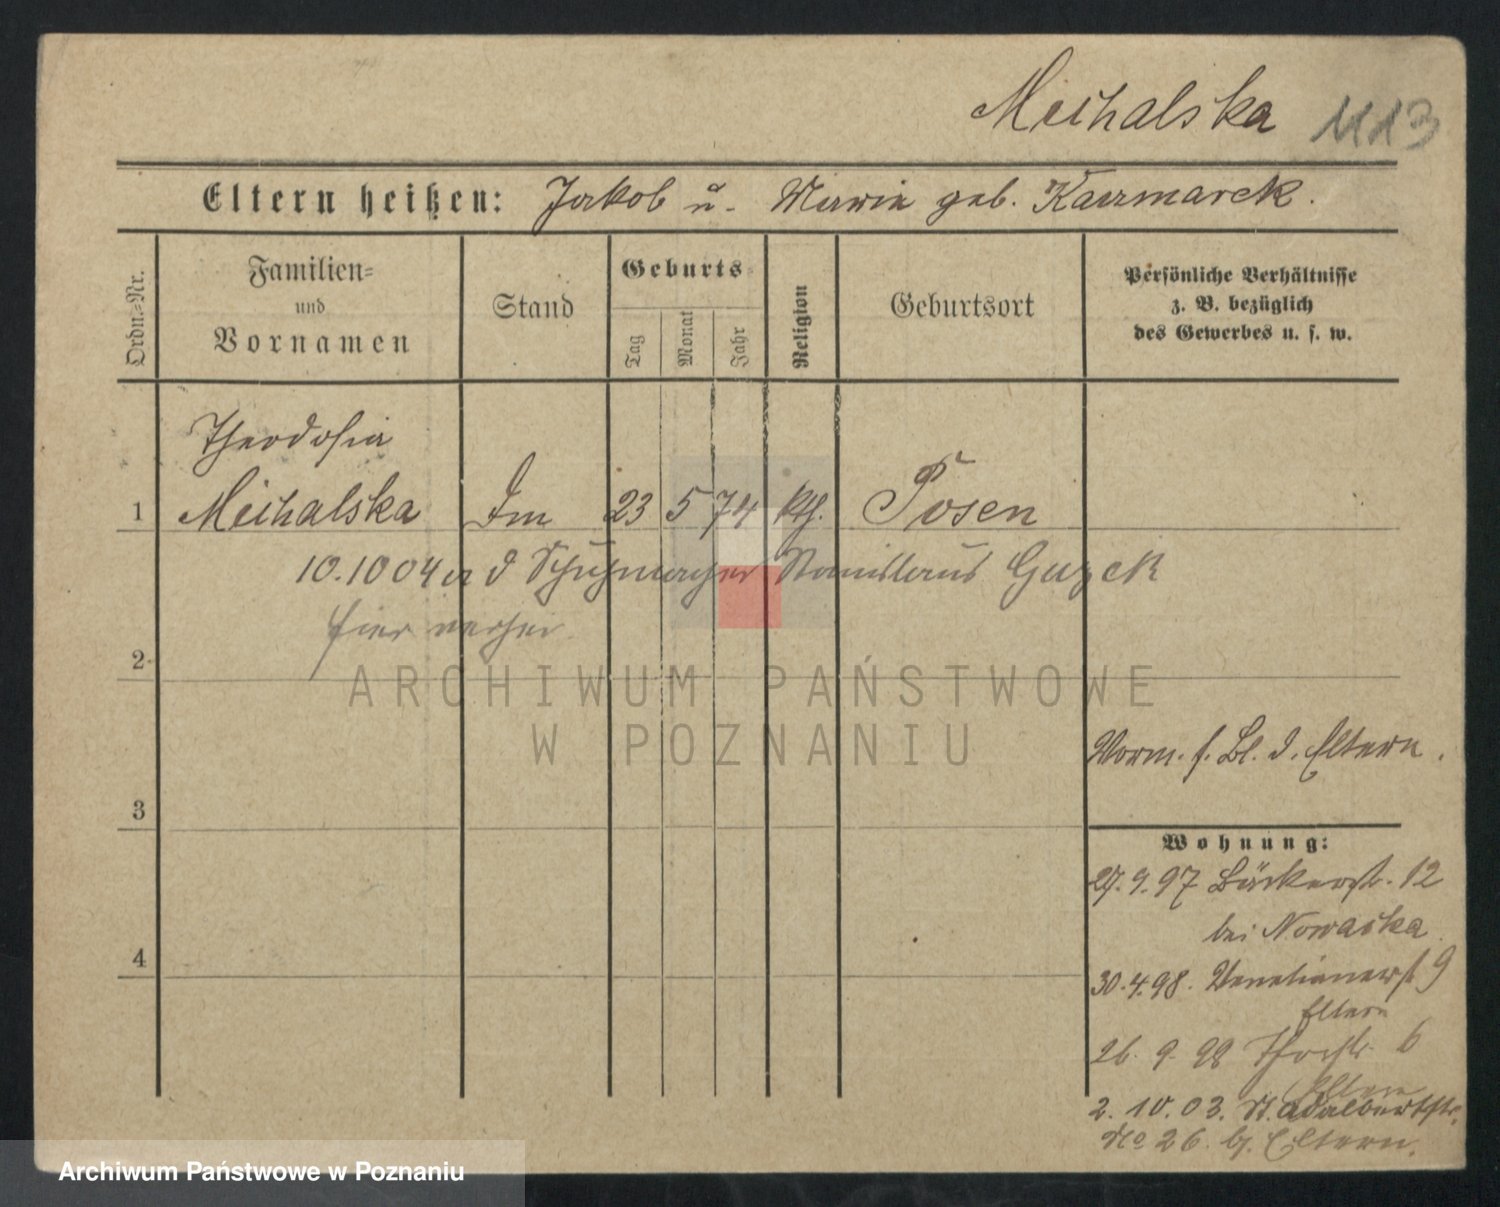 Michalska 1113
Eltern heißen: Jakob u. Marie geb. Kaczmarek.
Ordn.-Nr.
Familien-
und
Vornamen
Stand
Geburts-
Tag
Monat
Jahr
Religion
Geburtsort
Persönliche Verhältnisse
z. B. bezüglich
des Gewerbes u. s. w.
Theodosia
1 Michalska 23 5 74 kth. Posen
10.10 04 d Schuhmacher Stanislaus Guzek
hier
2
ARCHIWUM PAŃSTWOWE
W POZNANIU
Vorm. s. Bl. d. Eltern.
3
Wohnung:
27.9.97 Bäckerstr. 12
bei Nowacka
4
30.4.98. Venetianerstr 9
Eltern
26. 9. 98 6
Eltern
2. 10. 03. St. Adalbertstr.
No 26. b. Eltern.
Archiwum Państwowe w Poznaniu